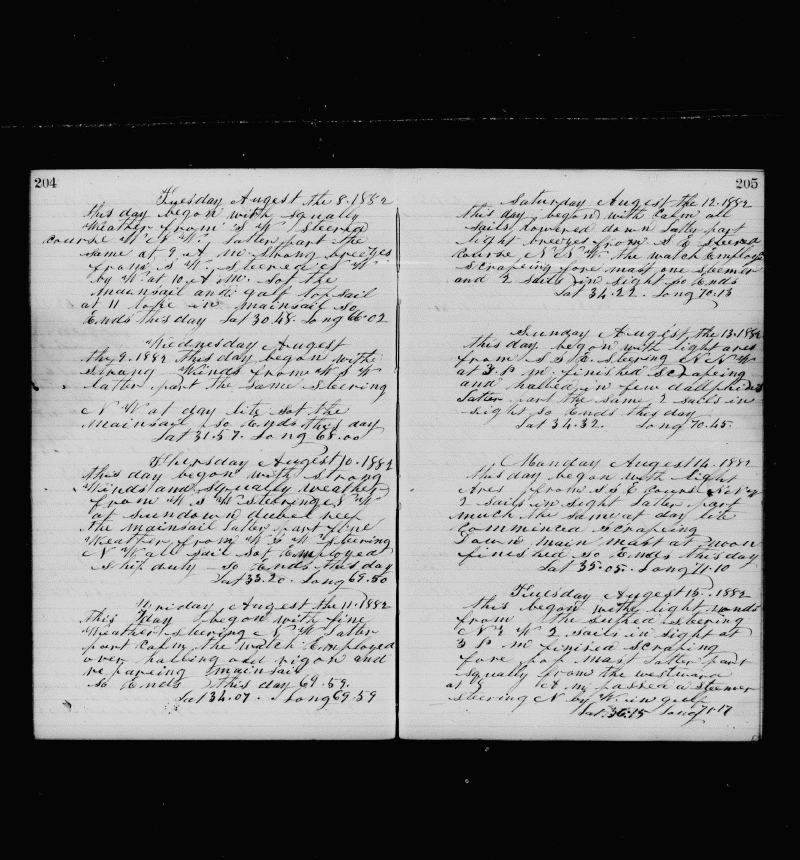 204
Tuesday Augest the 8.1882
this day began with squally
Weather from S W steered
course W N W. latter part the
same at 9 A m. strong breezes
from S W. steered N W
by W at 10 A m. sot the
mainsail and gaft topsail
at 11 tope in mainsail so
Ends this day Lat 30.48. Long 66.02
Wednesday Augest
the 9.1882 this day began with
strong Winds from W S W
latter part the same steering
N W at day lite sot the
mainsail so Ends this day
Lat 31.57. Long 68.00
Thersday Augest 10.1882
this day began with strong
Winds and squally weather
from W S W steering N W
at sundown dubel reef
the mainsail latter part fine
Weather from W S W steering
N W all sail sot Employed
ship duty so Ends this day
Lat 33.20. Long 69.50
Friday Augest the 11.1882
this day began with fine
Weather steering N W latter
part Calm the watch Employed
over halling old rigon and
repareing mainsail
so Ends this day 69.59.
Lat 34.07. Long 69.59
205
Saturday Augest the 12.1882
this day began with Calm all
sails lowered down latty part
light breezes from S E steered
Course N N W the watch Employ
scrapeing fore mast one steemer
and 2 sails in sight so Ends
Lat 34.22. Long 70.13
Sunday Augest the 13.1882
this day began with light ares
from S S E. steering N N W
at 3 P m. finished scrapeing
and halled in few dallphins
latter part the same 2 sails in
sight so Ends this day
Lat 34.32. Long 70.45.
Monday Augest 14.1882
this day began with light
Ares from S S E Course N N W
2 sails in sight latter part
much the same at day lite
Commenced scrapeing
down main mast at noon
finished so Ends this day
Lat 35.05. Long 71.10
Tuesday Augest 15.1882
this began withe light winds
from the suthed steering
N W 2 sails in sight at
3 P m finised scraping
fore top mast latter part
squaly from the westward
at A m. passed a steemer
steering N by E in gulf
Lat. 36.15 Long 71.17